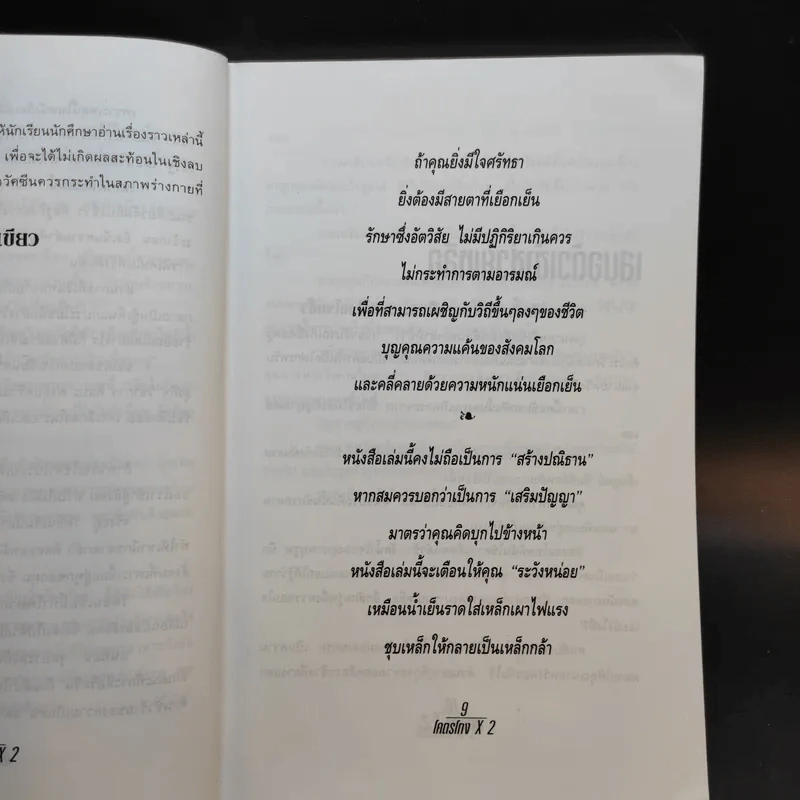 ห้นักเรียนนักศึกษาอ่านเรื่องราวเหล่านี้
เพื่อจะได้ไม่เกิดผลสะท้อนในเชิงลบ
วัคซีนควรกระทำในสภาพร่างกายที่
เขียว
X 2
ถ้าคุณยิ่งมีใจศรัทธา
ยิ่งต้องมีสายตาที่เยือกเย็น
รักษาซึ่งอัตวิสัย ไม่มีปฏิกิริยาเกินควร
ไม่กระทำการตามอารมณ์
เพื่อที่สามารถเผชิญกับวิถีขึ้นๆลงๆของชีวิต
บุญคุณความแค้นของสังคมโลก
และคลี่คลายด้วยความหนักแน่นเยือกเย็น
หนังสือเล่มนี้คงไม่ถือเป็นการ “สร้างปณิธาน”
หากสมควรบอกว่าเป็นการ “เสริมปัญญา”
มาตรว่าคุณคิดบุกไปข้างหน้า
หนังสือเล่มนี้จะเตือนให้คุณ “ระวังหน่อย”
เหมือนน้ำเย็นราดใส่เหล็กเผาไฟแรง
ชุบเหล็กให้กลายเป็นเหล็กกล้า
9
โคตรโกง X 2